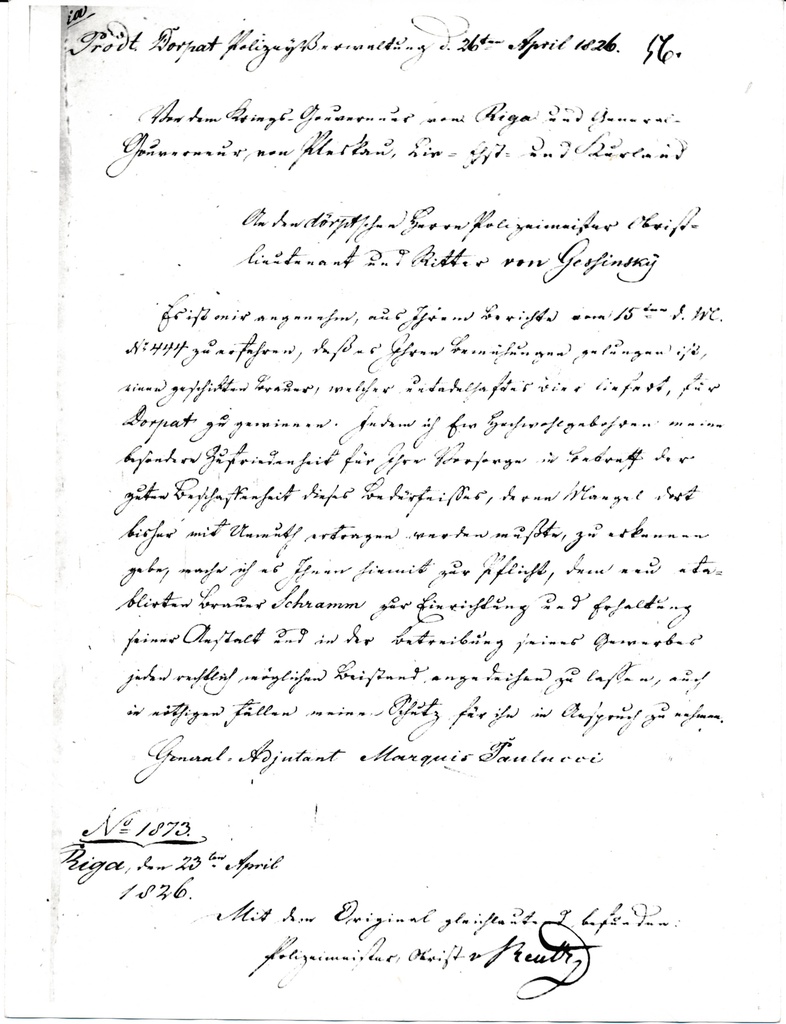 Prod. Dorpat Polizeyverwaltung d. 26ten April 1826. 56.
Von dem Kriegs-Gouverneur von Riga und General-
Gouverneur von Pleskau, Liv- Ehst- und Kurland
An den dörptschen Herrn Polizeimeister Obrist-
lieutenant und Ritter von Gessinsky
Es ist mir angenehm, aus Ihrem Berichte vom 15ten d. M.
No 444 zu erfahren, daß es Ihren Bemühungen gelungen ist,
einen geschickten Brauer, welcher untadelhaftes Bier liefert, für
Dorpat zu gewinnen. Indem ich Ew Hochwohlgebohren meine
besondere Zufriedenheit für Ihre Vorsorge in Betreff der
guten Beschaffenheit dieses Bedürfnisses, deren Mangel dort
bisher mit Unmuth ertragen werden mußte, zu erkennen
gebe, mache ich es Ihnen hiemit zur Pflicht, dem neu eta-
blirten Brauer Schramm zur Einrichtung und Erhaltung
seiner Anstalt und in der Betreibung seines Gewerbes
jeden rechtlich möglichen Beistand angedeihen zu lassen, auch
in nöthigen Fällen meinen Schutz für ihn in Anspruch zu nehmen.
General-Adjutant Marquis Paulucci
No 1873.
Riga, den 23ten April
1826.
Mit dem Original gleichlautend befunden:
Polizeimeister, Obrist v Reutz